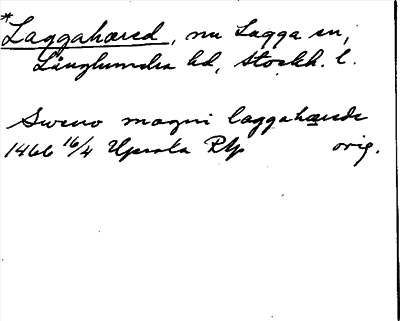 *Laggahæred, nu Lagga sn,
Långhundra hd, Stockh. l.
Sweno magni laggahærede
1466 16/4 Upsala RAp orig.